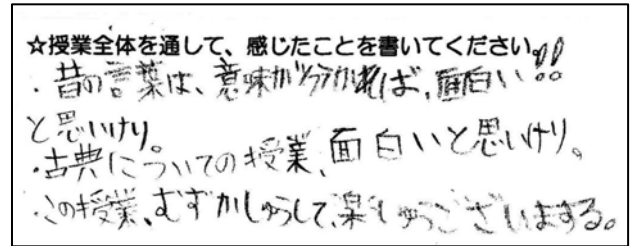 ☆授業全体を通して、感じたことを書いてください。
・昔の言葉は、意味が分かれば、面白い!!
と思いけり。
・古典についての授業、面白いと思いけり。
・この授業、むずかしゅうして、楽しゅうございまする。